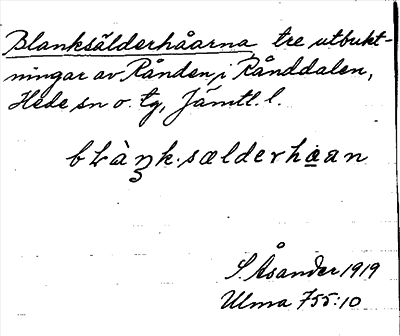 Blanksälderhåarna, tre utbukt-
ningar av Rånden i Rånddalen,
Hede sn o. tg, Jämtl. l.
S. Åsander 1919
Ulma 755:10